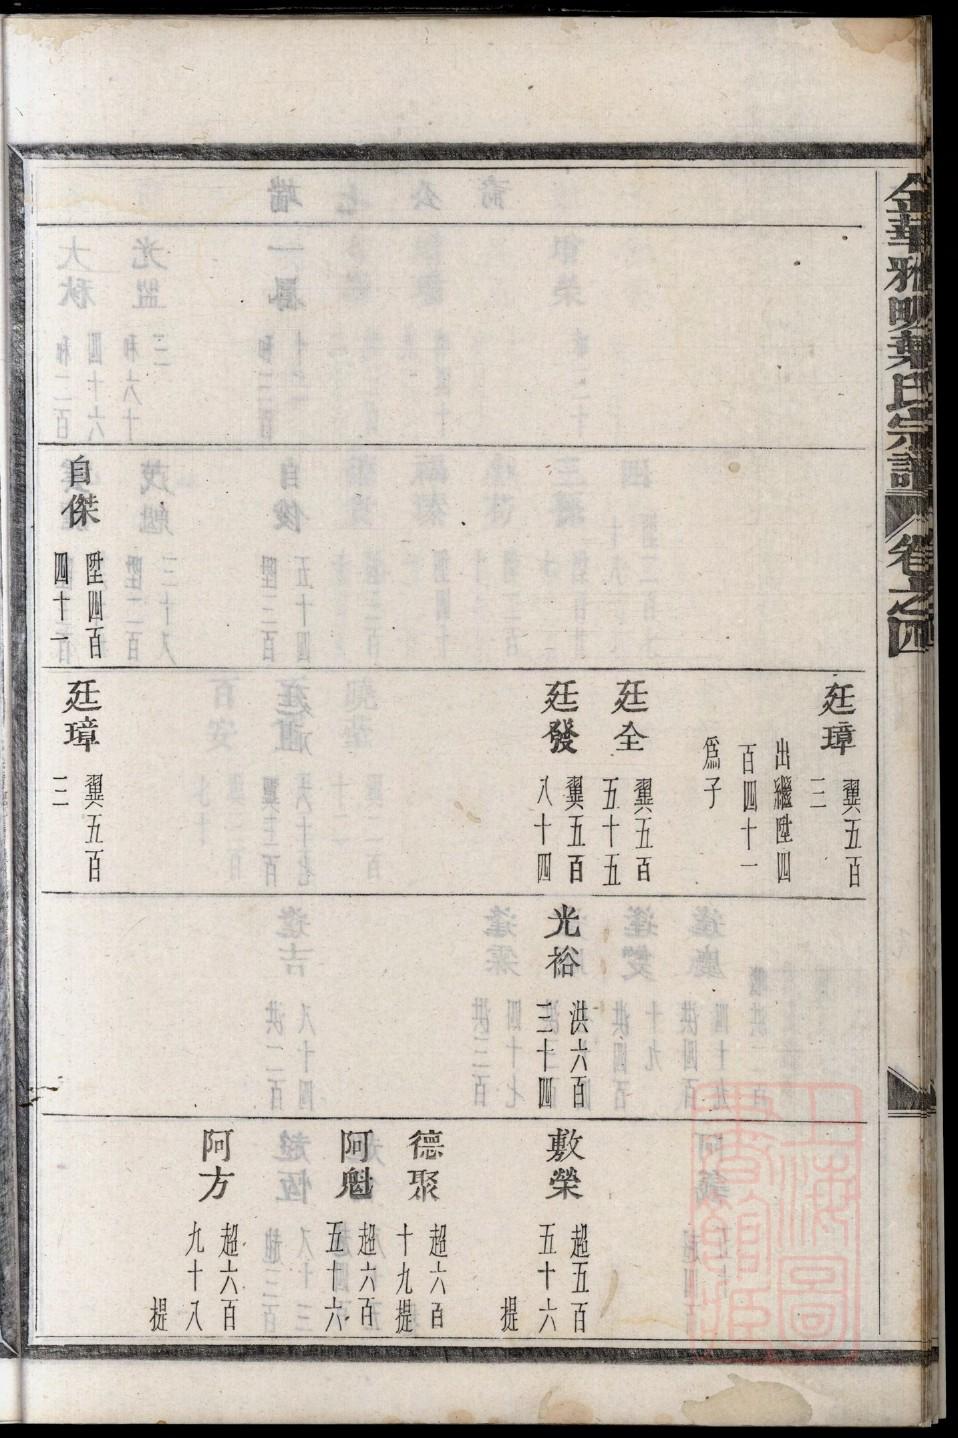 金華雅畈葉氏宗譜 卷之四
自傑 陞四百四十一
廷璋 翼五百三 出繼陞四百四十一爲子
廷全 翼五百五十五
廷發 翼五百八十四
廷璋 翼五百三
光裕 洪六百三十四
敷榮 超五百五十六 提
德聚 超六百十九 提
阿魁 超六百五十六
阿方 超六百九十八 提
上海圖書館藏